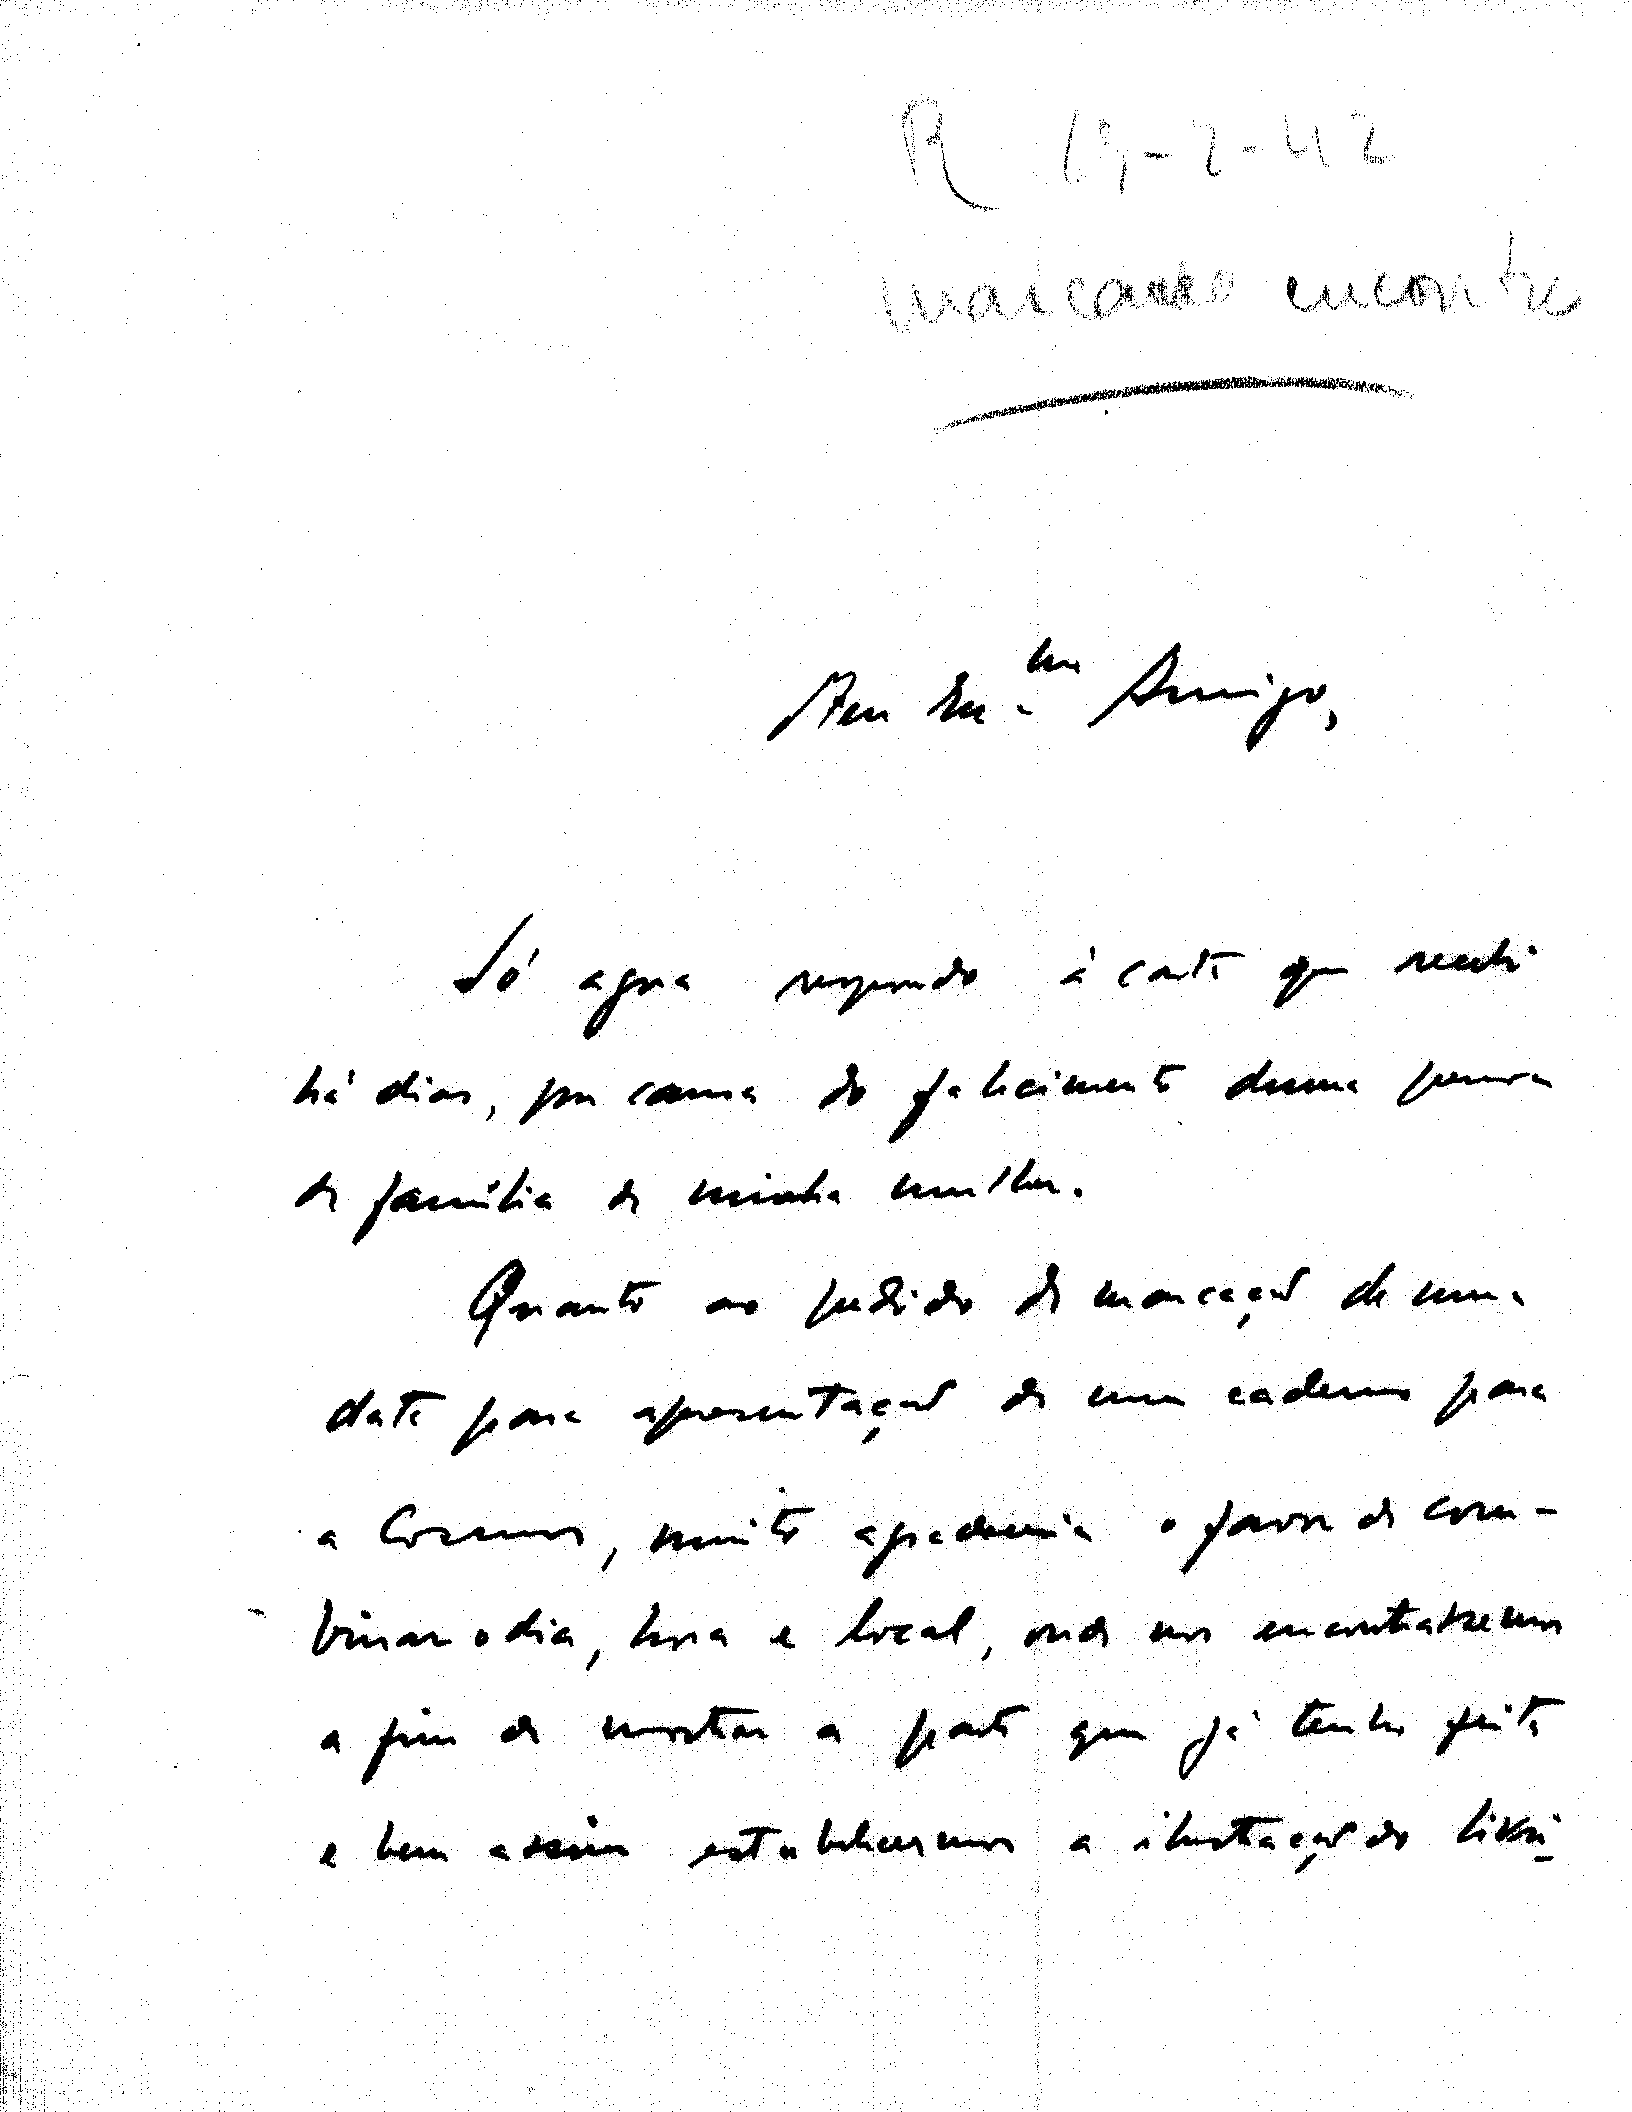 R 19-2-42
marcando encontro
Meu Ex.mo Amigo,
Só agora respondo à carta que recebi
há dias, por causa do falecimento duma pessoa
de família de minha mulher.
Quanto ao pedido de marcação de uma
data para apresentação de um caderno para
a Cosmos, muito agradecia o favor de com-
binar o dia, hora e local, onde nos encontrassemos
a fim de mostrar a parte que já tenho feita
e bem assim estabelecermos a ilustração do livri-